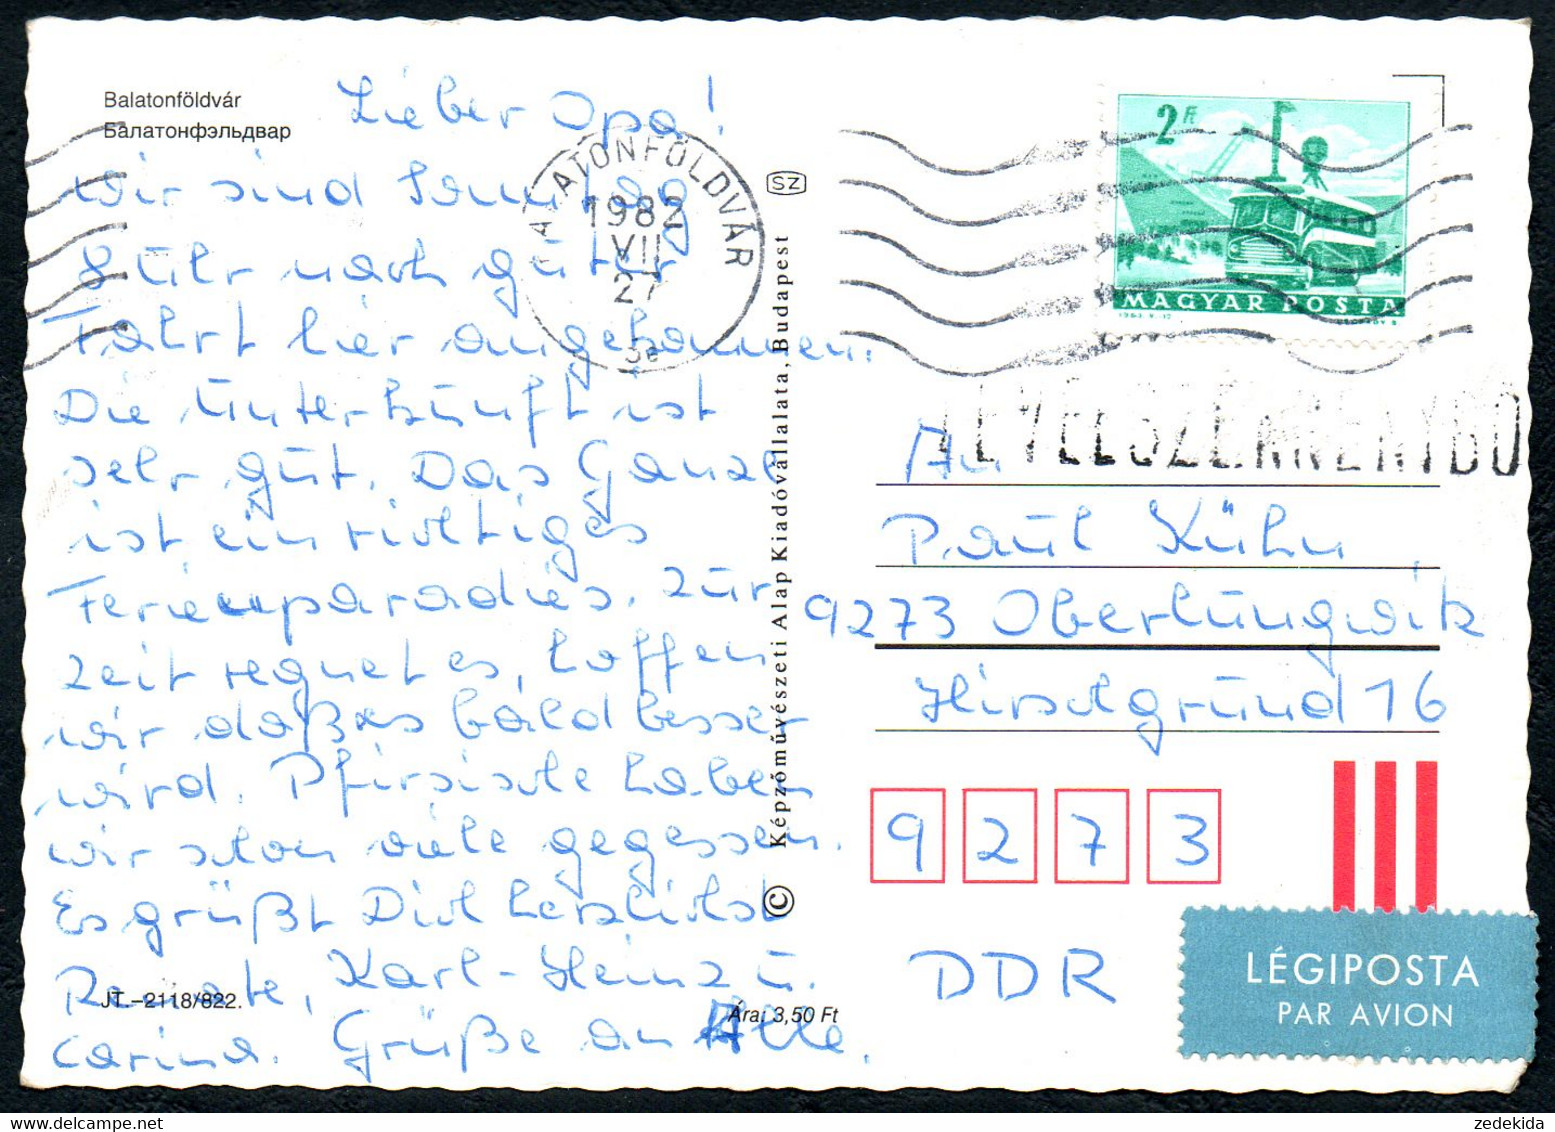 Balatonföldvár
Балатонфэльдвар
Lieber Opa!
Wir sind Sonntag
8 Uhr nach guter
Fahrt hier angekommen.
Die Unterkunft ist
sehr gut. Das Ganze
ist ein richtiges
Ferienparadies. Zur
Zeit regnet es, hoffen
wir daß es bald besser
wird. Pfirsiche haben
wir schon viele gegessen.
Es grüßt Dich herzlichst
Renate, Karl-Heinz u.
Carina. Grüße an Alle.
JT.–2118/822.
Ára: 3,50 Ft
BALATONFÖLDVÁR
1982
VII
27
SZ
© Képzőművészeti Alap Kiadóvállalata, Budapest
2 Ft
MAGYAR POSTA
LEVÉLSZEKRÉNYBŐL
An
Paul Kühn
9273 Oberlungwitz
Hirschgrund 16
9 2 7 3
DDR
LÉGIPOSTA
PAR AVION
zedekida